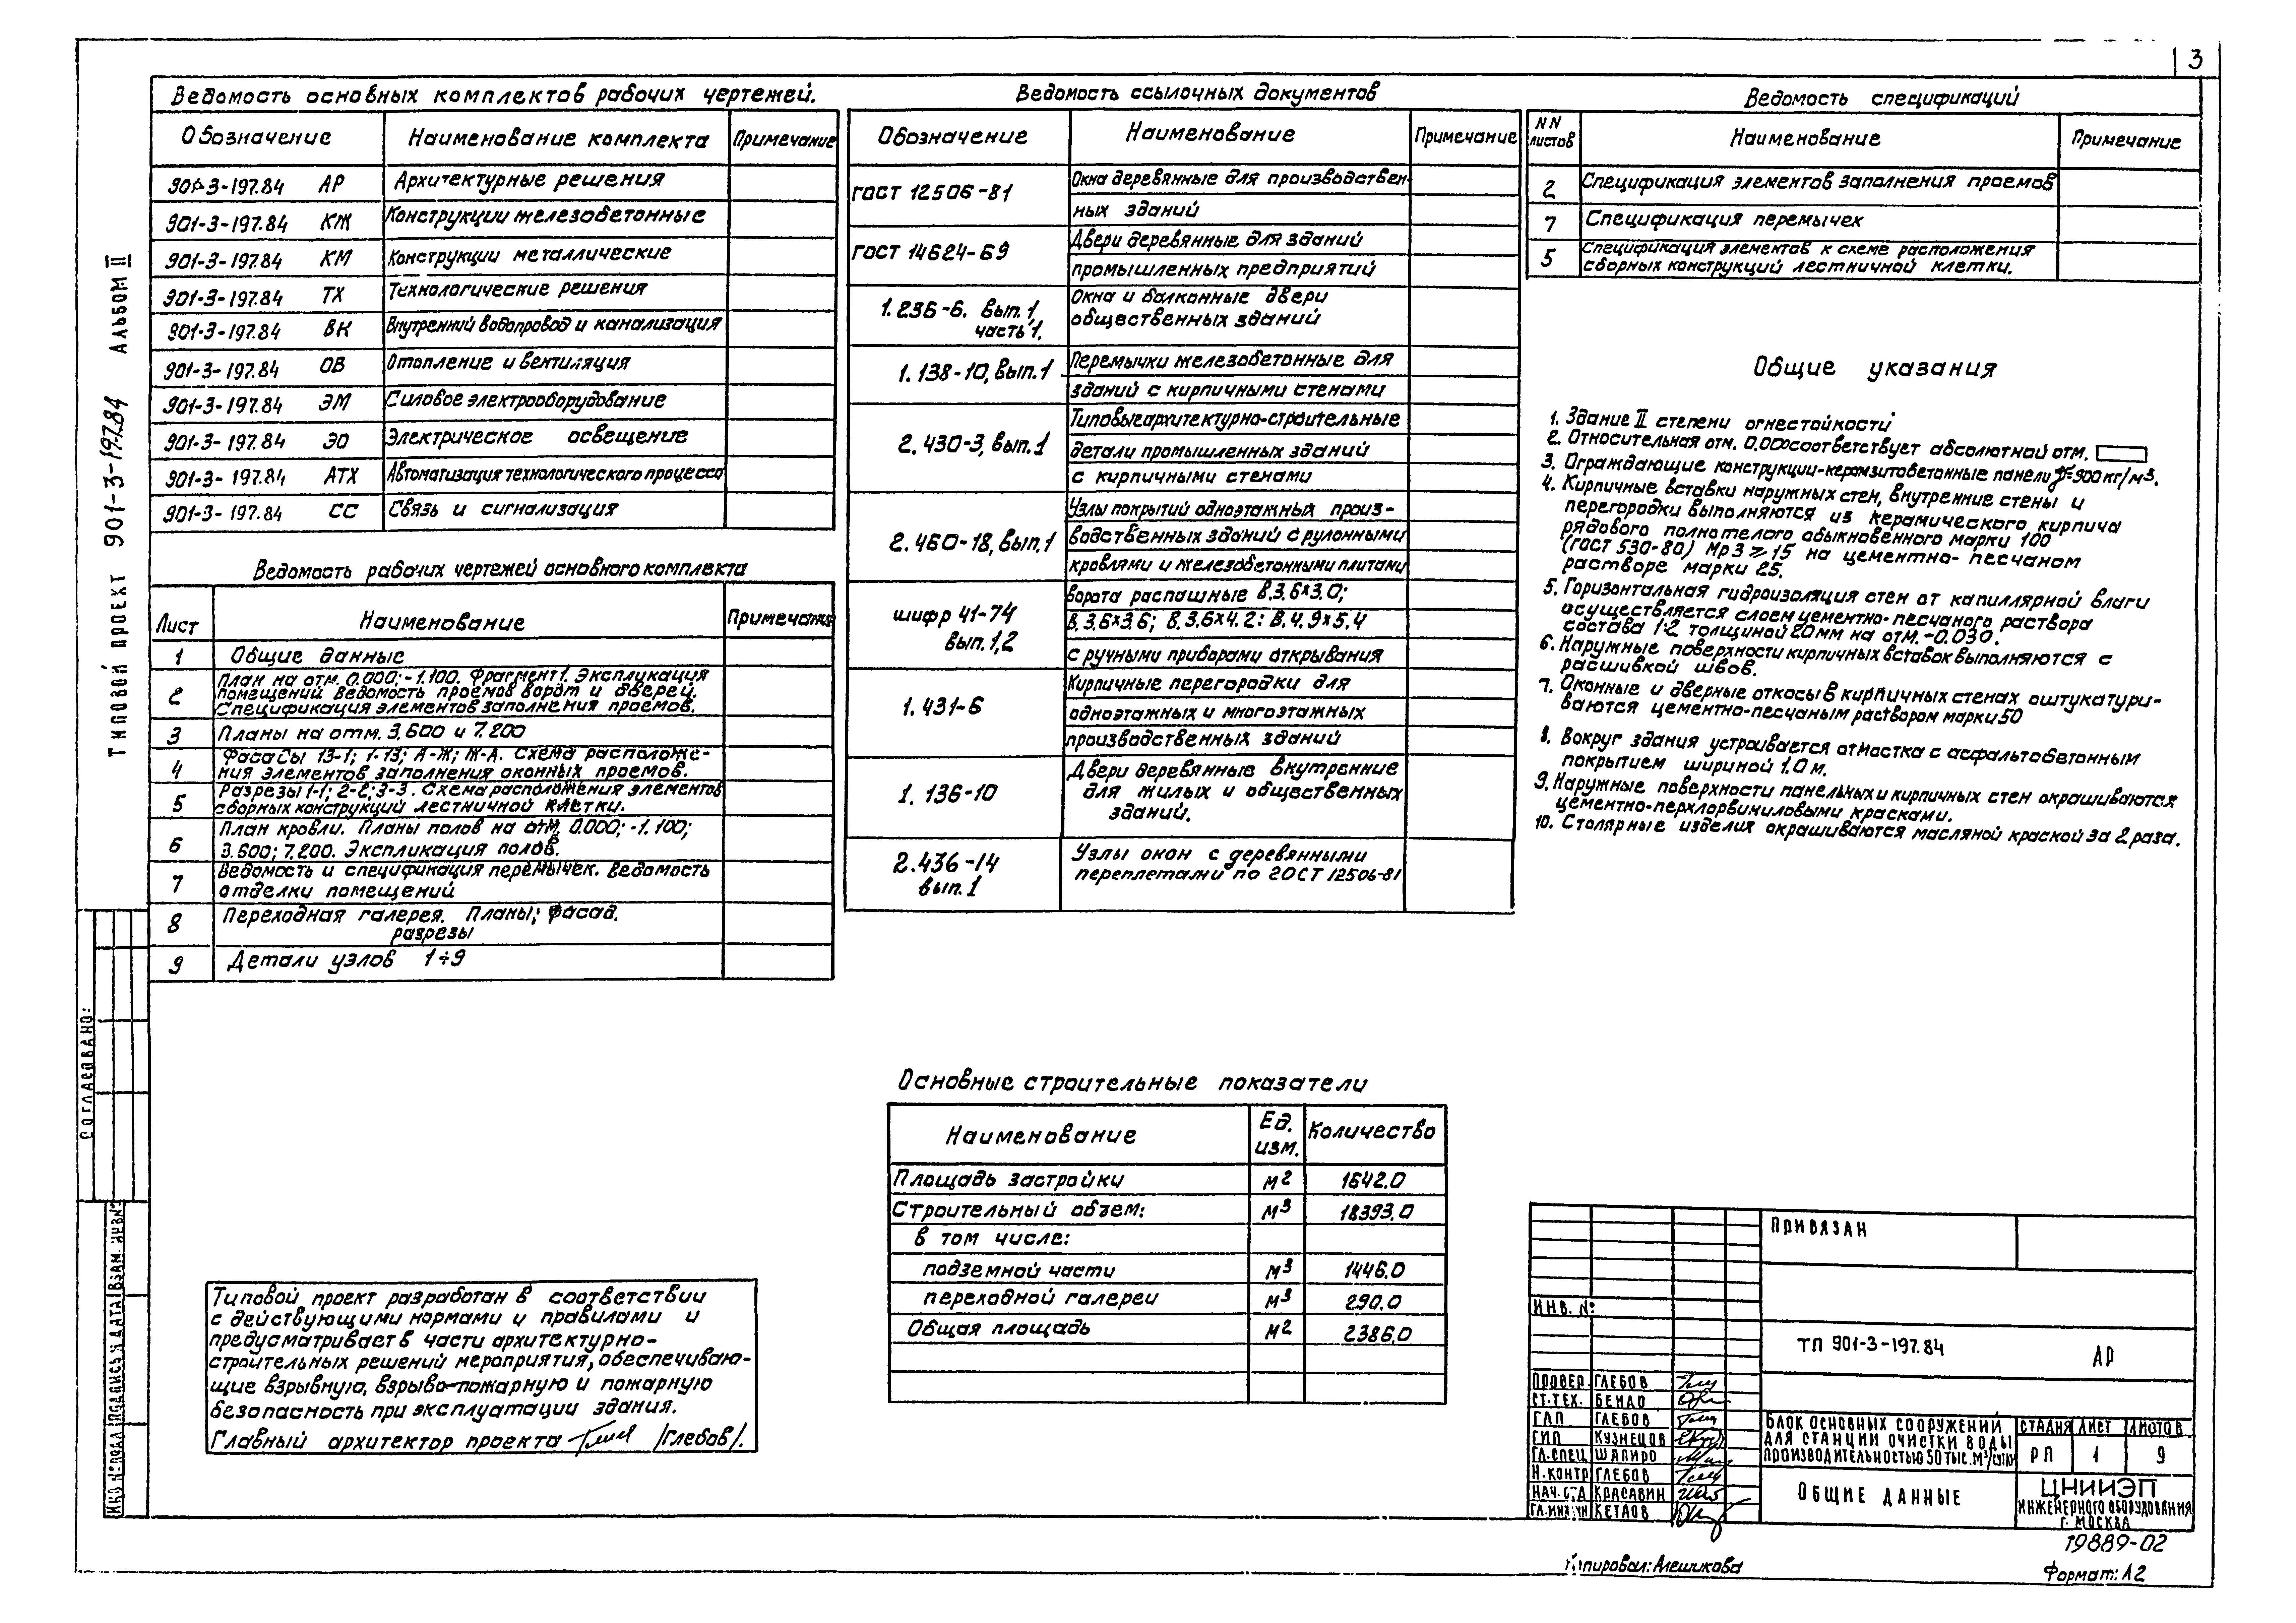 3
Ведомость основных комплектов рабочих чертежей.
Обозначение Наименование комплекта Примечание
901-3-197.84 АР Архитектурные решения
901-3-197.84 КЖ Конструкции железобетонные
901-3-197.84 КМ Конструкции металлические
901-3-197.84 ТХ Технологические решения
901-3-197.84 ВК Внутренний водопровод и канализация
901-3-197.84 ОВ Отопление и вентиляция
901-3-197.84 ЭМ Силовое электрооборудование
901-3-197.84 ЭО Электрическое освещение
901-3-197.84 АТХ Автоматизация технологического процесса
901-3-197.84 СС Связь и сигнализация
Ведомость рабочих чертежей основного комплекта
Лист Наименование Примечание
1 Общие данные
2 План на отм. 0.000; -1.100. Фрагмент 1. Экспликация
помещений. Ведомость проемов ворот и дверей.
Спецификация элементов заполнения проемов.
3 Планы на отм. 3.600 и 7.200
4 Фасады 13-1; 1-13; А-Ж; Ж-А. Схема расположе-
ния элементов заполнения оконных проемов.
5 Разрезы 1-1; 2-2; 3-3. Схема расположения элементов
сборных конструкций лестничной клетки.
6 План кровли. Планы полов на отм. 0.000; -1.100;
3.600; 7.200. Экспликация полов.
7 Ведомость и спецификация перемычек. Ведомость
отделки помещений
8 Переходная галерея. Планы; фасад.
разрезы
9 Детали узлов 1÷9
Ведомость ссылочных документов
Обозначение Наименование Примечание
ГОСТ 12506-81 Окна деревянные для производствен-
ных зданий
ГОСТ 14624-69 Двери деревянные для зданий
промышленных предприятий
1.236-6. вып. 1 часть 1. Окна и балконные двери
общественных зданий
1.138-10, вып. 1 Перемычки железобетонные для
зданий с кирпичными стенами
2.430-3, вып. 1 Типовые архитектурно-строительные
детали промышленных зданий
с кирпичными стенами
2.460-18, вып. 1 Узлы покрытий одноэтажных произ-
водственных зданий с рулонными
кровлями и железобетонными плитами
шифр 41-74 вып. 1,2 Ворота распашные В.3.6×3.0;
В.3.6×3.6; В.3.6×4.2; В.4.9×5.4
с ручными приборами открывания
1.431-6 Кирпичные перегородки для
одноэтажных и многоэтажных
производственных зданий
1.136-10 Двери деревянные внутренние
для жилых и общественных
зданий.
2.436-14 вып. 1 Узлы окон с деревянными
переплетами по ГОСТ 12506-81
Ведомость спецификаций
NN листов Наименование Примечание
2 Спецификация элементов заполнения проемов
7 Спецификация перемычек
5 Спецификация элементов к схеме расположения
сборных конструкций лестничной клетки.
Общие указания
1. Здание II степени огнестойкости
2. Относительная отм. 0,000 соответствует абсолютной отм.
3. Ограждающие конструкции-керамзитобетонные панели γ=900 кг/м³.
4. Кирпичные вставки наружных стен, внутренние стены и
перегородки выполняются из керамического кирпича
рядового полнотелого обыкновенного марки 100
(ГОСТ 530-80) Мрз ≥ 15 на цементно-песчаном
растворе марки 25.
5. Горизонтальная гидроизоляция стен от капиллярной влаги
осуществляется слоем цементно-песчаного раствора
состава 1:2 толщиной 20 мм на отм. -0.030.
6. Наружные поверхности кирпичных вставок выполняются с
расшивкой швов.
7. Оконные и дверные откосы в кирпичных стенах оштукатури-
ваются цементно-песчаным раствором марки 50
8. Вокруг здания устраивается отмостка с асфальтобетонным
покрытием шириной 1.0 м.
9. Наружные поверхности панельных и кирпичных стен окрашиваются
цементно-перхлорвиниловыми красками.
10. Столярные изделия окрашиваются масляной краской за 2 раза.
Основные строительные показатели
Наименование Ед. изм. Количество
Площадь застройки м2 1642.0
Строительный объем: м3 18393.0
в том числе:
подземной части м3 1446.0
переходной галереи м3 290.0
Общая площадь м2 2386.0
Типовой проект разработан в соответствии
с действующими нормами и правилами и
предусматривает в части архитектурно-
строительных решений мероприятия, обеспечиваю-
щие взрывную, взрыво-пожарную и пожарную
безопасность при эксплуатации здания.
Главный архитектор проекта /Глебов/.
ТИПОВОЙ ПРОЕКТ 901-3-197.84 АЛЬБОМ II
СОГЛАСОВАНО:
ИНВ. № ПОДЛ. ПОДПИСЬ И ДАТА ВЗАМ. ИНВ. №
ПРИВЯЗАН
ИНВ. №:
ТП 901-3-197.84 АР
ПРОВЕР. ГЛЕБОВ
СТ.ТЕХ.
ГАП ГЛЕБОВ
ГИП КУЗНЕЦОВ
ГЛ.СПЕЦ ШАПИРО
Н.КОНТР ГЛЕБОВ
НАЧ.ОТД КРАСАВИН
КЕТАОВ
БЛОК ОСНОВНЫХ СООРУЖЕНИЙ
ДЛЯ СТАНЦИИ ОЧИСТКИ ВОДЫ
ПРОИЗВОДИТЕЛЬНОСТЬЮ 50 ТЫС. М³/СУТКИ
СТАДИЯ ЛИСТ ЛИСТОВ
РП 1 9
ОБЩИЕ ДАННЫЕ
ЦНИИЭП
ИНЖЕНЕРНОГО ОБОРУДОВАНИЯ
Г. МОСКВА
19889-02
Копировал: Алешикова
Формат: А2